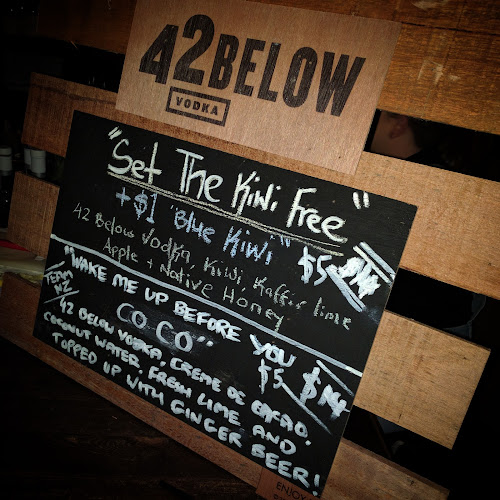 42BELOW
VODKA
"Set The Kiwi Free"
+$1 "Blue Kiwi" $5 $14
42 Below Vodka Kiwi Kaffir lime
Apple + Native Honey
TEAM NZ
"WAKE ME UP BEFORE YOU
CO CO" $5 $14
42 BELOW VODKA, CREME DE CACAO,
COCONUT WATER, FRESH LIME AND
TOPPED UP WITH GINGER BEER!
ENJOY